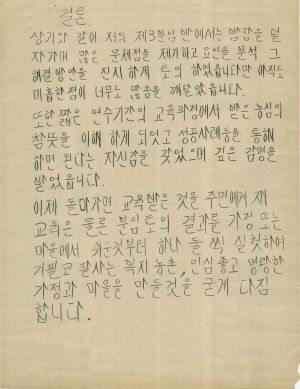 결론.
상기와 같이 저의 제3분임 반에서는 밤잠을 덜
자가며 많은 문제점을 제기하고 요인을 분석 그
해결방안을 진지하게 토의 하였습니다만 아직도
미흡한점이 너무도 많음을 깨달았읍니다.
또한 짧은 연수기간의 교육과정에서 받은 농심의
참뜻을 이해 하게 되었고 성공사례등을 통해
하면 된다는 자신감을 갖었으며 깊은 감명을
받었읍니다.
이제 돌아가면 교육받은 것을 주민에게 재
교육은 물론 분임토의 결과를 가정 또는
마을에서 쉬운것부터 하나 둘 씩 실천하여
기필코 잘사는 복지농촌, 인심좋고 명랑한
가정과 마을을 만들것을 굳게 다짐
합니다.